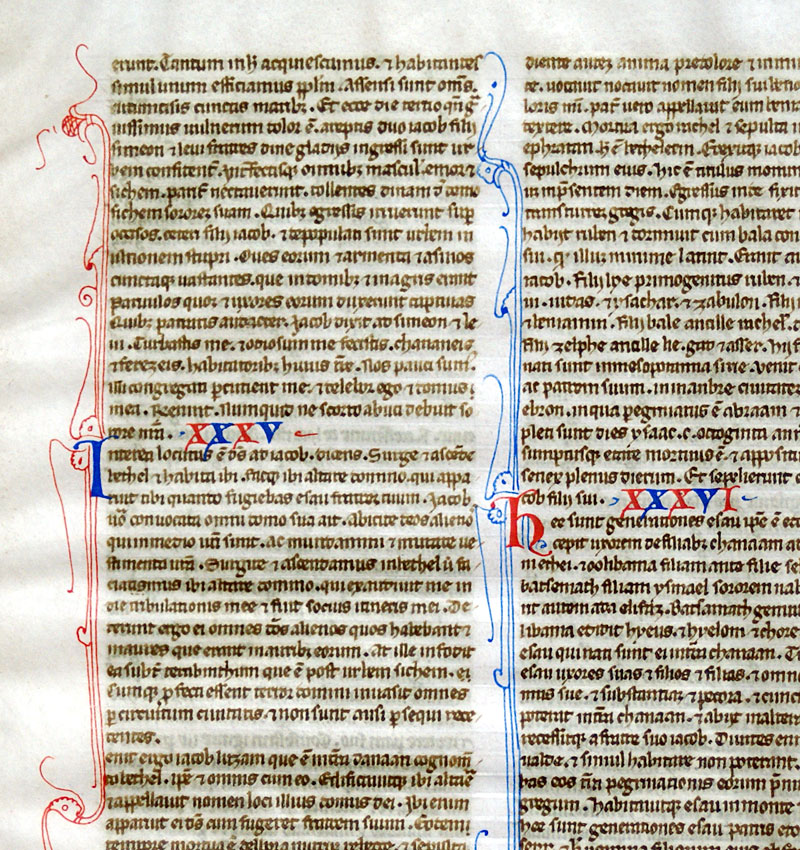 erunt. Tantum in h acquiescimus. ⁊ habitantes
simul unum efficiamus pplm. Assensi sunt oms.
circumcisis cunctis marib. Et ecce die tertio qn g
uissimus uulnerum dolor ē. areptis duo iacob filii
simeon ⁊ leui fratres dine gladiis ingressi sunt ur
bem confident. Int̄fectisq omnib mascul. emor ⁊
sichem. parit̄ necauerunt. tollentes dinam d domo
sichem sororē suam. Quib egressis irruerunt sup
occisos. ceteri filii iacob. ⁊ depopulati sunt urbem in
ultionem stupri. Oues eorum ⁊ armenta ⁊ asinos
cunctaq uastantes. que in domib ⁊ in agris erant
paruulos quoq ⁊ uxores eorum duxerunt captiuas
Quib patratis audacter. Jacob dixit ad simeon ⁊ le
ui. Turbastis me. ⁊ odiosum me fecistis. chananeis
⁊ ferezeis. habitatorib huius tr̄e. Nos pauci sum.
illi congregati percutient me. ⁊ delebor ego ⁊ domus
mea. Rn̄derunt. Numquid ne scorto abuti debuit so
rore nr̄a. XXXV
Interea locutus ē ds ad iacob. dicens. Surge ⁊ ascēde
bethel ⁊ habita ibi. facq ibi altare domino. qui appa
ruit tibi quando fugiebas esau fratrem tuum. Jacob
uō conuocata omni domo sua ait. Abicite deos alieno
qui in medio ur̄i sunt. ac mundamini ⁊ mutate ue
stimenta ur̄a. Surgite ⁊ ascendamus in bethel ū fa
ciamus ibi altare domino. qui exaudiuit me in
die tribulationis mee ⁊ fuit socius itineris mei. De
derunt ergo ei omnes deos alienos quos habebant ⁊
inaures que erant in aurib eorum. At ille infodit
ea subt̄ terebinthum que ē post urbem sichem. ei
Cumq pfecti essent terror domini inuasit omnes
p circuitum ciuitatis. ⁊ non sunt ausi psequi rece
dentes.
enit ergo iacob luzam que ē in tr̄a chanaan cognom̄
to bethel. ipē ⁊ omnis cum eo. Edificauitq ibi altare
⁊ appellauit nomen loci illius domus dei. Ibi enim
apparuit ei ds cum fugeret fratrem suum. Eodem
tempore mortua ē delbora nutrix rebecce ⁊ sepulta
diente autem anima pre dolore ⁊ immi
te. uocauit nomen filii sui benon
loris mei. pat̄ uero appellauit eum benia
dextere. Mortua ergo rachel ⁊ sepulta
ephratam. h ē bethleem. Erexitq iacob
sepulchrum eius. hic ē titulus monim
in presentem diem. Egressus inde fixit
trans turrem gregis. Cumq habitaret
abiit ruben ⁊ dormiuit cum bala con
sui. q illum minime latuit. Erant au
iacob. Filii lye primogenitus ruben. ⁊
ui. iudas. ⁊ ysachar. ⁊ zabulon. Filii
⁊ beniamin. Filii bale ancille rachel.
Filii zelphe ancille lie. gad ⁊ asser. hii f
nati sunt in mesopotamia sirie. Venit
ad patrem suum. in mambre ciuitatem
ebron. in qua peregrinatus ē abraam ⁊
pleti sunt dies ysaac. c. octoginta ann
sumptusq etate mortuus ē. ⁊ appositus
senex plenus dierum. Et sepelierunt
cob filii sui. XXXVI
Hee sunt generationes esau ipē ē ed
cepit uxorem de filiab chanaam ad
in ethei. ⁊ oolibama filiam ana filie se
batsemath filiam ysmael sororem nab
nt autem ada elifaz. Batsamath genuit
libama edidit hyeus. ⁊ hyelom ⁊ chore
esau qui nati sunt ei in tr̄a chanaan. T
esau uxores suas ⁊ filios ⁊ filias. ⁊ omn
mus sue. ⁊ substantiā ⁊ pecora. ⁊ cunc
poterat in tr̄a chanaan. ⁊ abiit in alteram
recessitq a fratre suo iacob. Diuites eni
ualde. ⁊ simul habitare non poterant.
bas eos tr̄a peregrinationis eorum p̄
gregum. habitauitq esau in monte
hee sunt generationes esau patris edo